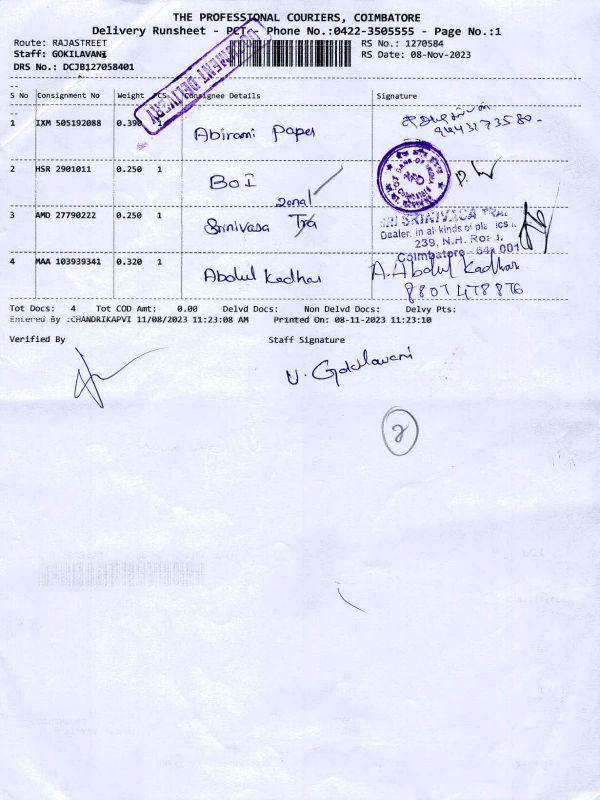 THE PROFESSIONAL COURIERS, COIMBATORE
Delivery Runsheet - PCT - Phone No.:0422-3505555 - Page No.:1
Route: RAJASTREET RS No.: 1270584
Staff: GOKILAVANI RS Date: 08-Nov-2023
DRS No.: DCJB127058401
DOCUMENT DELIVERY
S No Consignment No Weight PCS Consignee Details Signature
1 IXM 505192088 0.390 1 Abirami Paper
9443173580-
2 HSR 2901011 0.250 1 BOI
Zonal
3 AMD 27790222 0.250 1 Srinivasa Tra
SRI SRINIVASA TRA
Dealer. in all kinds of
239, N.H. Road,
Coimbatore - 641 001
4 MAA 103939341 0.320 1 Abdul Kadhar A. Abdul Kadhar
8807478876
Tot Docs: 4 Tot COD Amt: 0.00 Delvd Docs: Non Delvd Docs: Delvy Pts:
Entered By :CHANDRIKAPVI 11/08/2023 11:23:08 AM Printed On: 08-11-2023 11:23:10
Verified By Staff Signature
V. Gokilavani
2